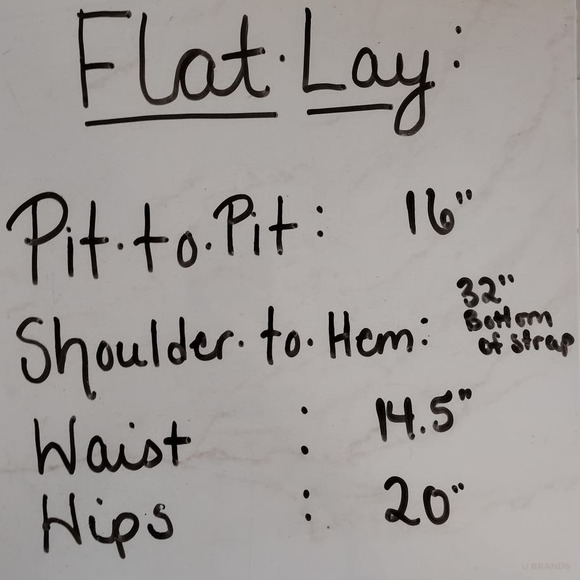 Flat·Lay:
Pit·to·Pit: 16"
Shoulder·to·Hem: 32"
Bottom
of strap
Waist : 14.5"
Hips : 20"
U BRANDS